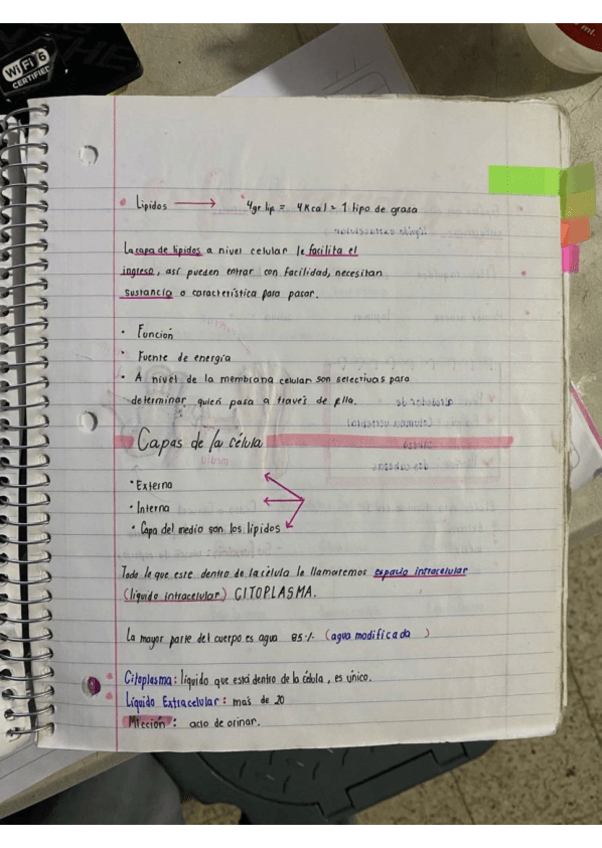 WiFi 6
CERTIFIED
ml.
• Lipidos → 4gr lip = 4Kcal = 1 tipo de grasa
La capa de lipidos a nivel celular le facilita el
ingreso, así pueden entrar con facilidad, necesitan
sustancia o caracteristica para pasar.
• Función
• Fuente de energía
• A nivel de la membrana celular son selectivas para
determinar quien pasa a través de ella.
Capas de la célula
• Externa
• Interna
• Capa del medio son los lipidos
Todo lo que este dentro de la célula le llamaremos espacio intracelular
(liquido intracelular) CITOPLASMA.
La mayor parte del cuerpo es agua 85% (agua modificada)
Citoplasma: líquido que está dentro de la célula, es único.
Líquido Extracelular: más de 20
Micción: acto de orinar.